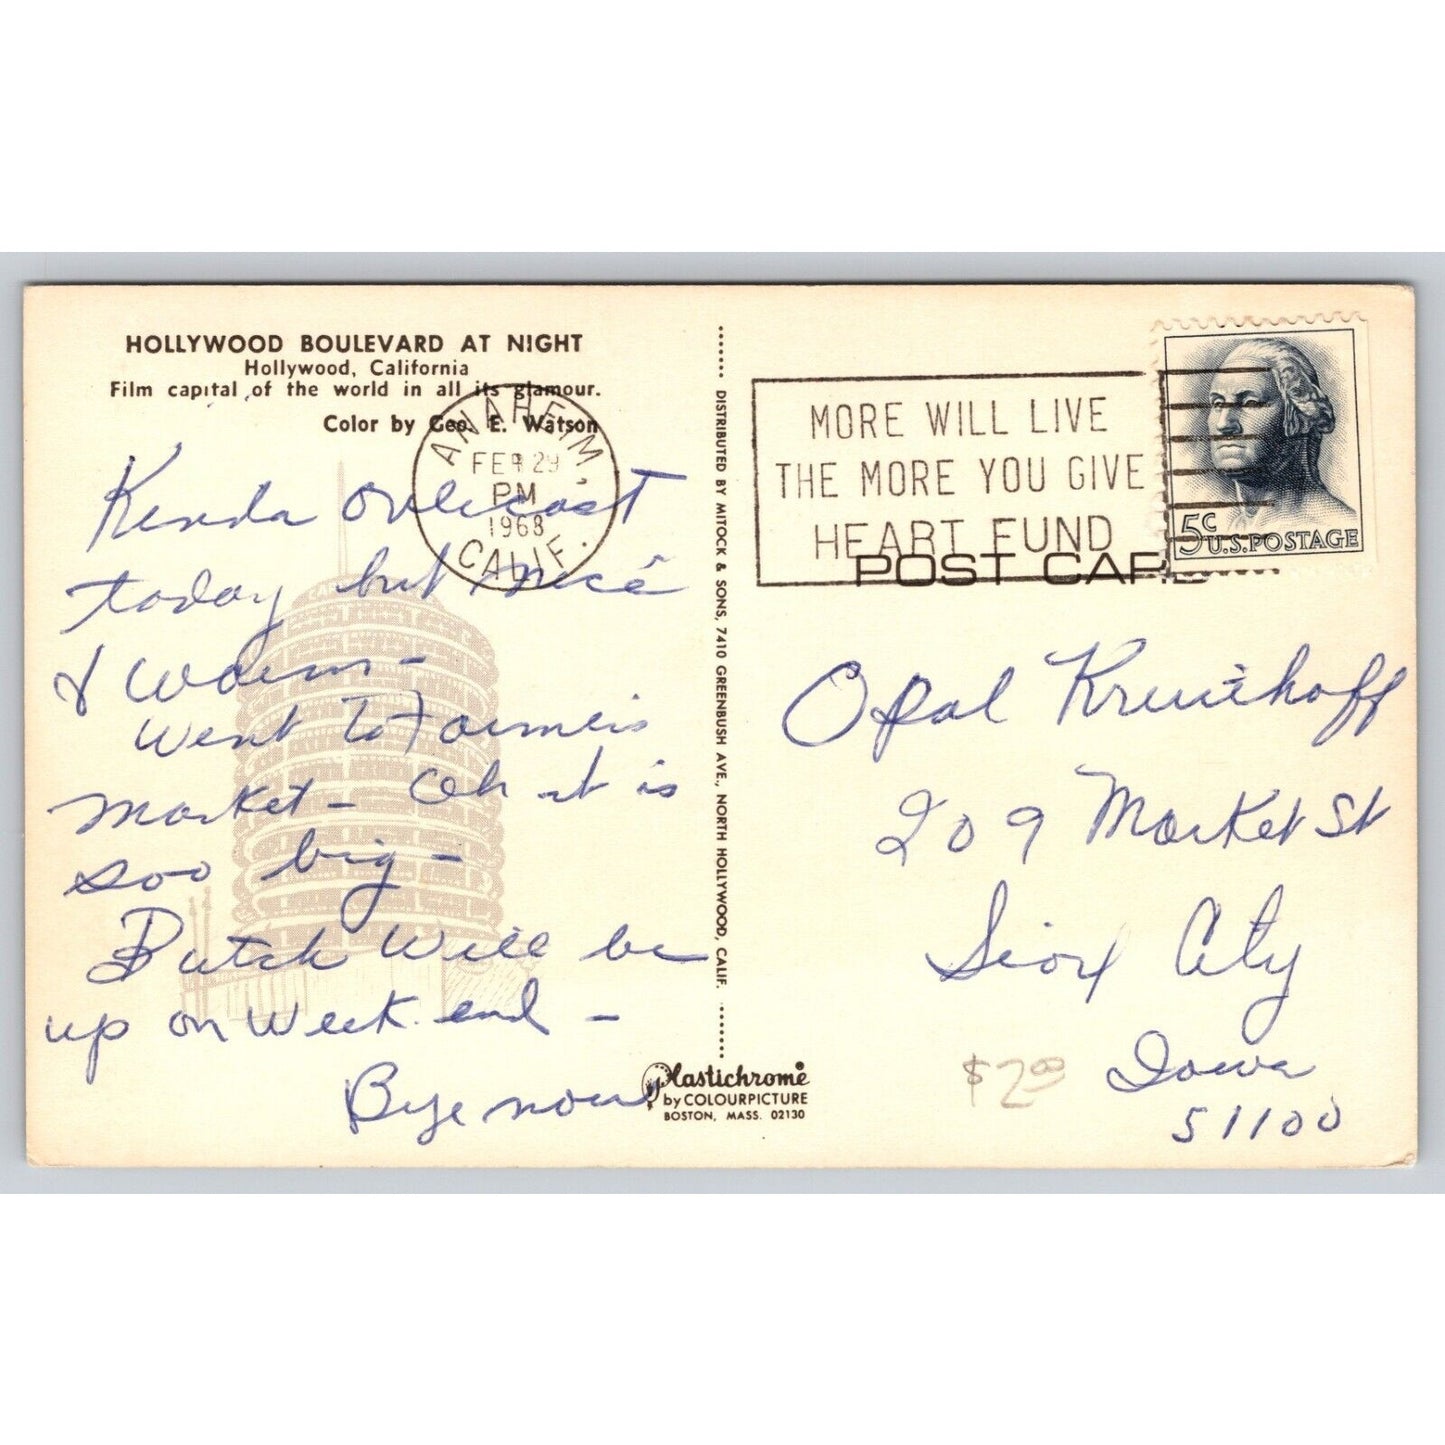 HOLLYWOOD BOULEVARD AT NIGHT
Hollywood, California
Film capital of the world in all its glamour.
Color by Geo. E. Watson
ANAHEIM,
FEB 29
PM
1968
CALIF.
Kinda overcast
today but nice
& warm -
Went to Farmers
market - Oh it is
soo big -
Butch will be
up on week end -
Bye now
DISTRIBUTED BY MITOCK & SONS, 7410 GREENBUSH AVE., NORTH HOLLYWOOD, CALIF.
Plastichrome
by COLOURPICTURE
BOSTON, MASS. 02130
MORE WILL LIVE
THE MORE YOU GIVE
HEART FUND
5c
U.S. POSTAGE
POST CARD
Opal
209 Market St
Sioux City
Iowa
51100
$2.00